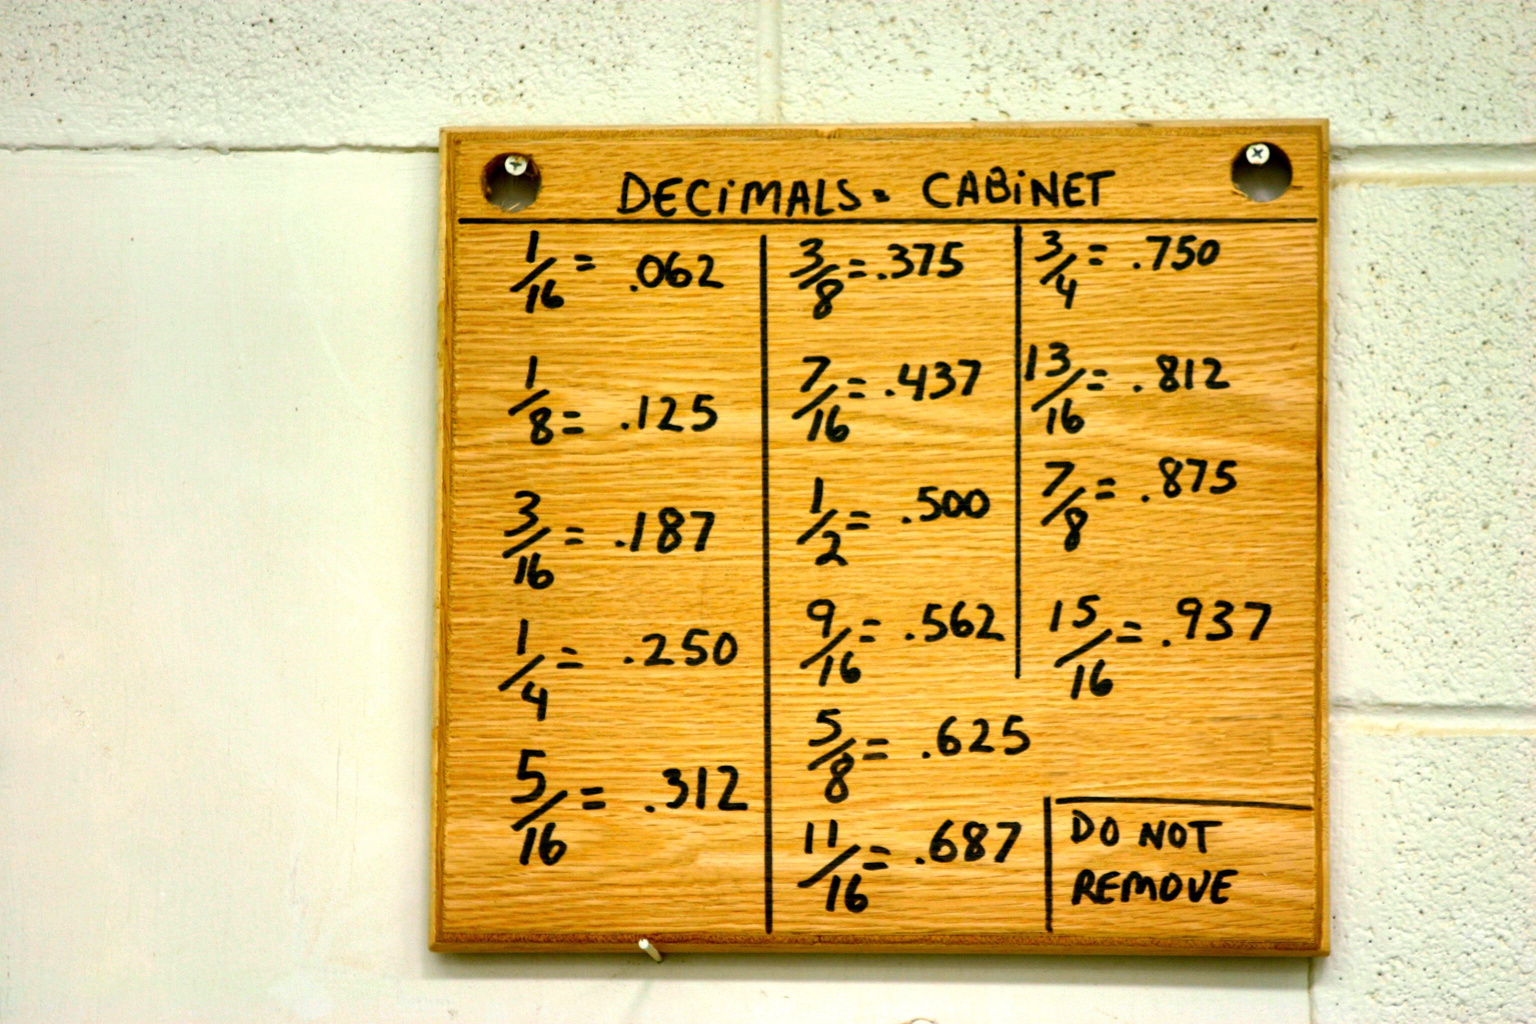 DECiMALS = CABiNET
1/16 = .062
1/8 = .125
3/16 = .187
1/4 = .250
5/16 = .312
3/8 = .375
7/16 = .437
1/2 = .500
9/16 = .562
5/8 = .625
11/16 = .687
3/4 = .750
13/16 = .812
7/8 = .875
15/16 = .937
DO NOT
REMOVE